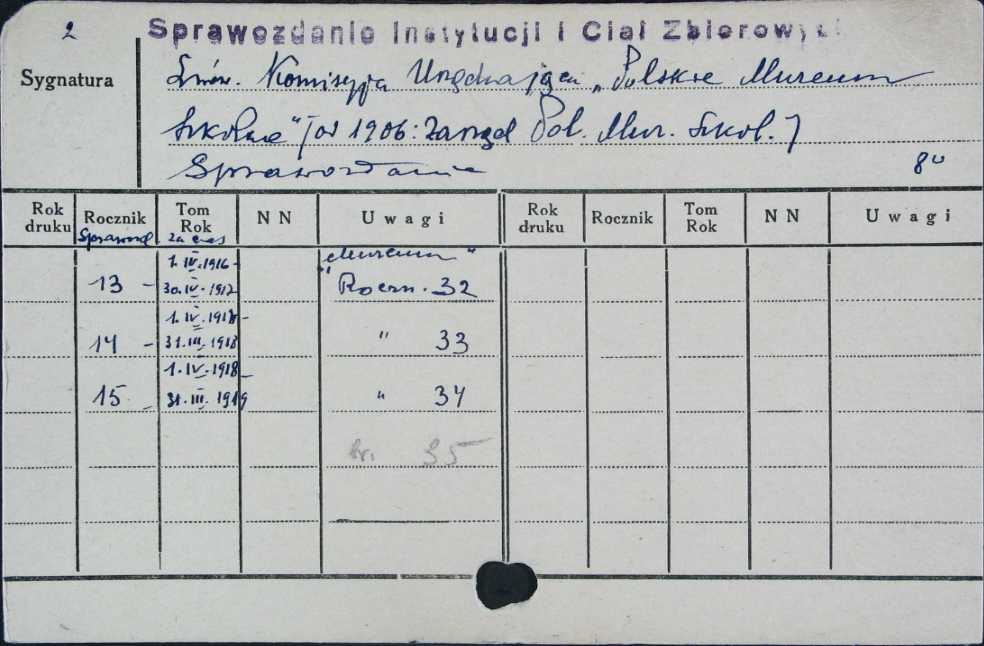 2
Sprawozdanie Instytucji i Ciał Zbiorowych
Sygnatura
Lwów. Komisyja Urządzająca „Polskie Museum
Szkolne" [od 1906: Zarząd Pol. Muz. Szkol.]
Sprawozdanie
8°
Rok druku Rocznik Tom Rok NN Uwagi Rok druku Rocznik Tom Rok NN Uwagi
Sprawozd za czas
1.IV.1916 - „Museum"
13 - 30.IV.1917 Roczn. 32
1.IV.1917 -
14 - 31.III.1918 " 33
1.IV.1918 -
15 - 31.III.1919 " 34
35